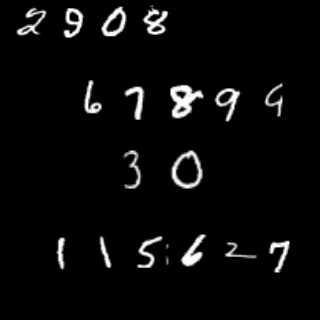 2908
67899
30
115627